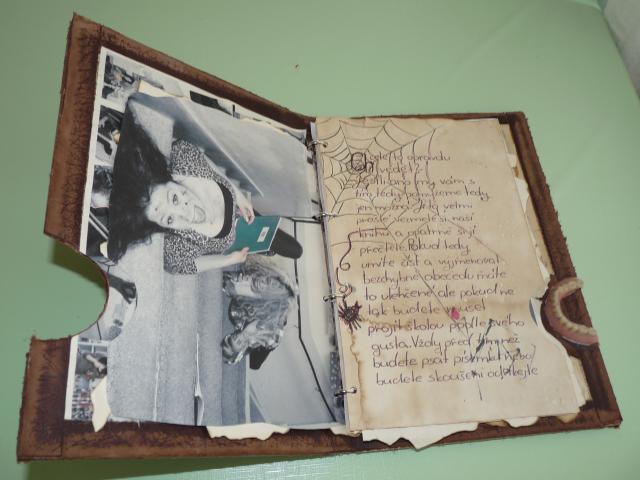 Chcete to opravdu
vědět?
my vám s
tím tedy pomůžeme tedy
jen možná. Je to velmi
prosté vezměte si naší
knihu a opatrně si ji
přečtěte. Pokud tedy
umíte číst a vyjmenovat
bezchybně abecedu máte
to ulehčené ale pokud ne
tak budete muset
projít školou podle svého
gusta. Vždy před tím než
budete psát písemku nebo
budete zkoušeni odříkejte